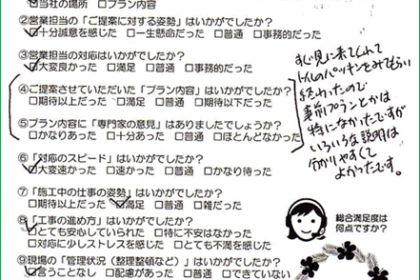 ☑当社の場所 □プラン内容
②営業担当の「ご提案に対する姿勢」はいかがでしたか？
☑十分誠意を感じた □一生懸命だった □普通 □事務的だった
③営業担当の対応はいかがでしたか？
☑大変良かった □満足 □普通 □事務的だった
④ご提案させていただいた「プラン内容」はいかがでしたか？
□期待以上だった □満足 □普通 □期待以下だった
⑤プラン内容に「専門家の意見」はありましたでしょうか？
□かなりあった □十分あった □普通 □ほとんどなかった
⑥「対応のスピード」はいかがでしたか？
☑大変速かった □速かった □普通 □かなり待った
⑦「施工中の仕事の姿勢」はいかがでしたか？
□期待以上だった ☑満足だった □普通 □雑だった
⑧「工事の進め方」はいかがでしたか？
☑とても安心していられた □特に不安はなかった
□対応に少しストレスを感じた □とても不満を感じた
⑨現場の「管理状況（整理整頓など）」はいかがでしたか？
☑言うことなし □配慮があった □普通 □できていない
すぐ見に来てくれて
パッキンをみてもらい
終わったので
事前プランとかは
特になかったですが
いろいろな説明は
分かりやすくて
よかったです。
総合満足度は
何点ですか？